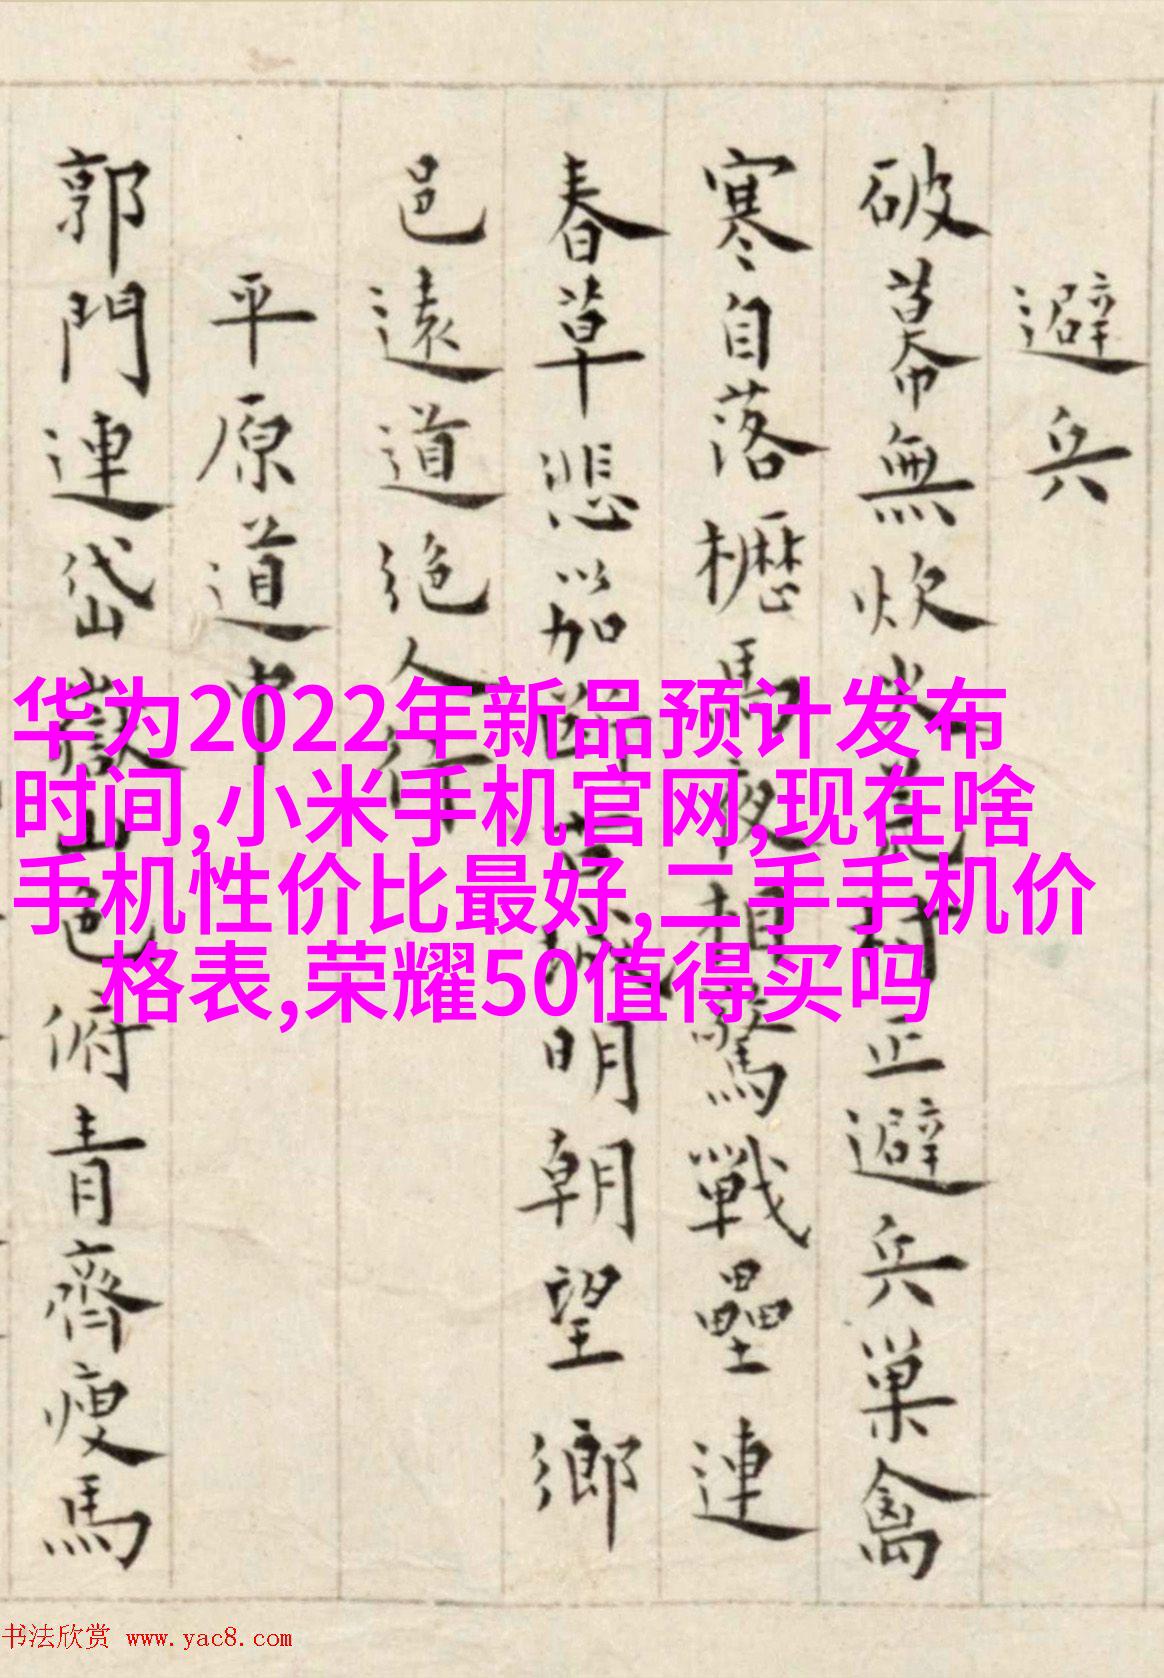 避兵
破幕無炊村正避兵巢禽
寒自落櫪馬夜相驚戰壘連
春草悲笳明朝望鄉
邑遠道絕人行
平原道中
郭門連岱嶽山色俯青齊瘦馬
华为2022年新品预计发布
时间,小米手机官网,现在啥
手机性价比最好,二手手机价
格表,荣耀50值得买吗
书法欣赏 www.yac8.com